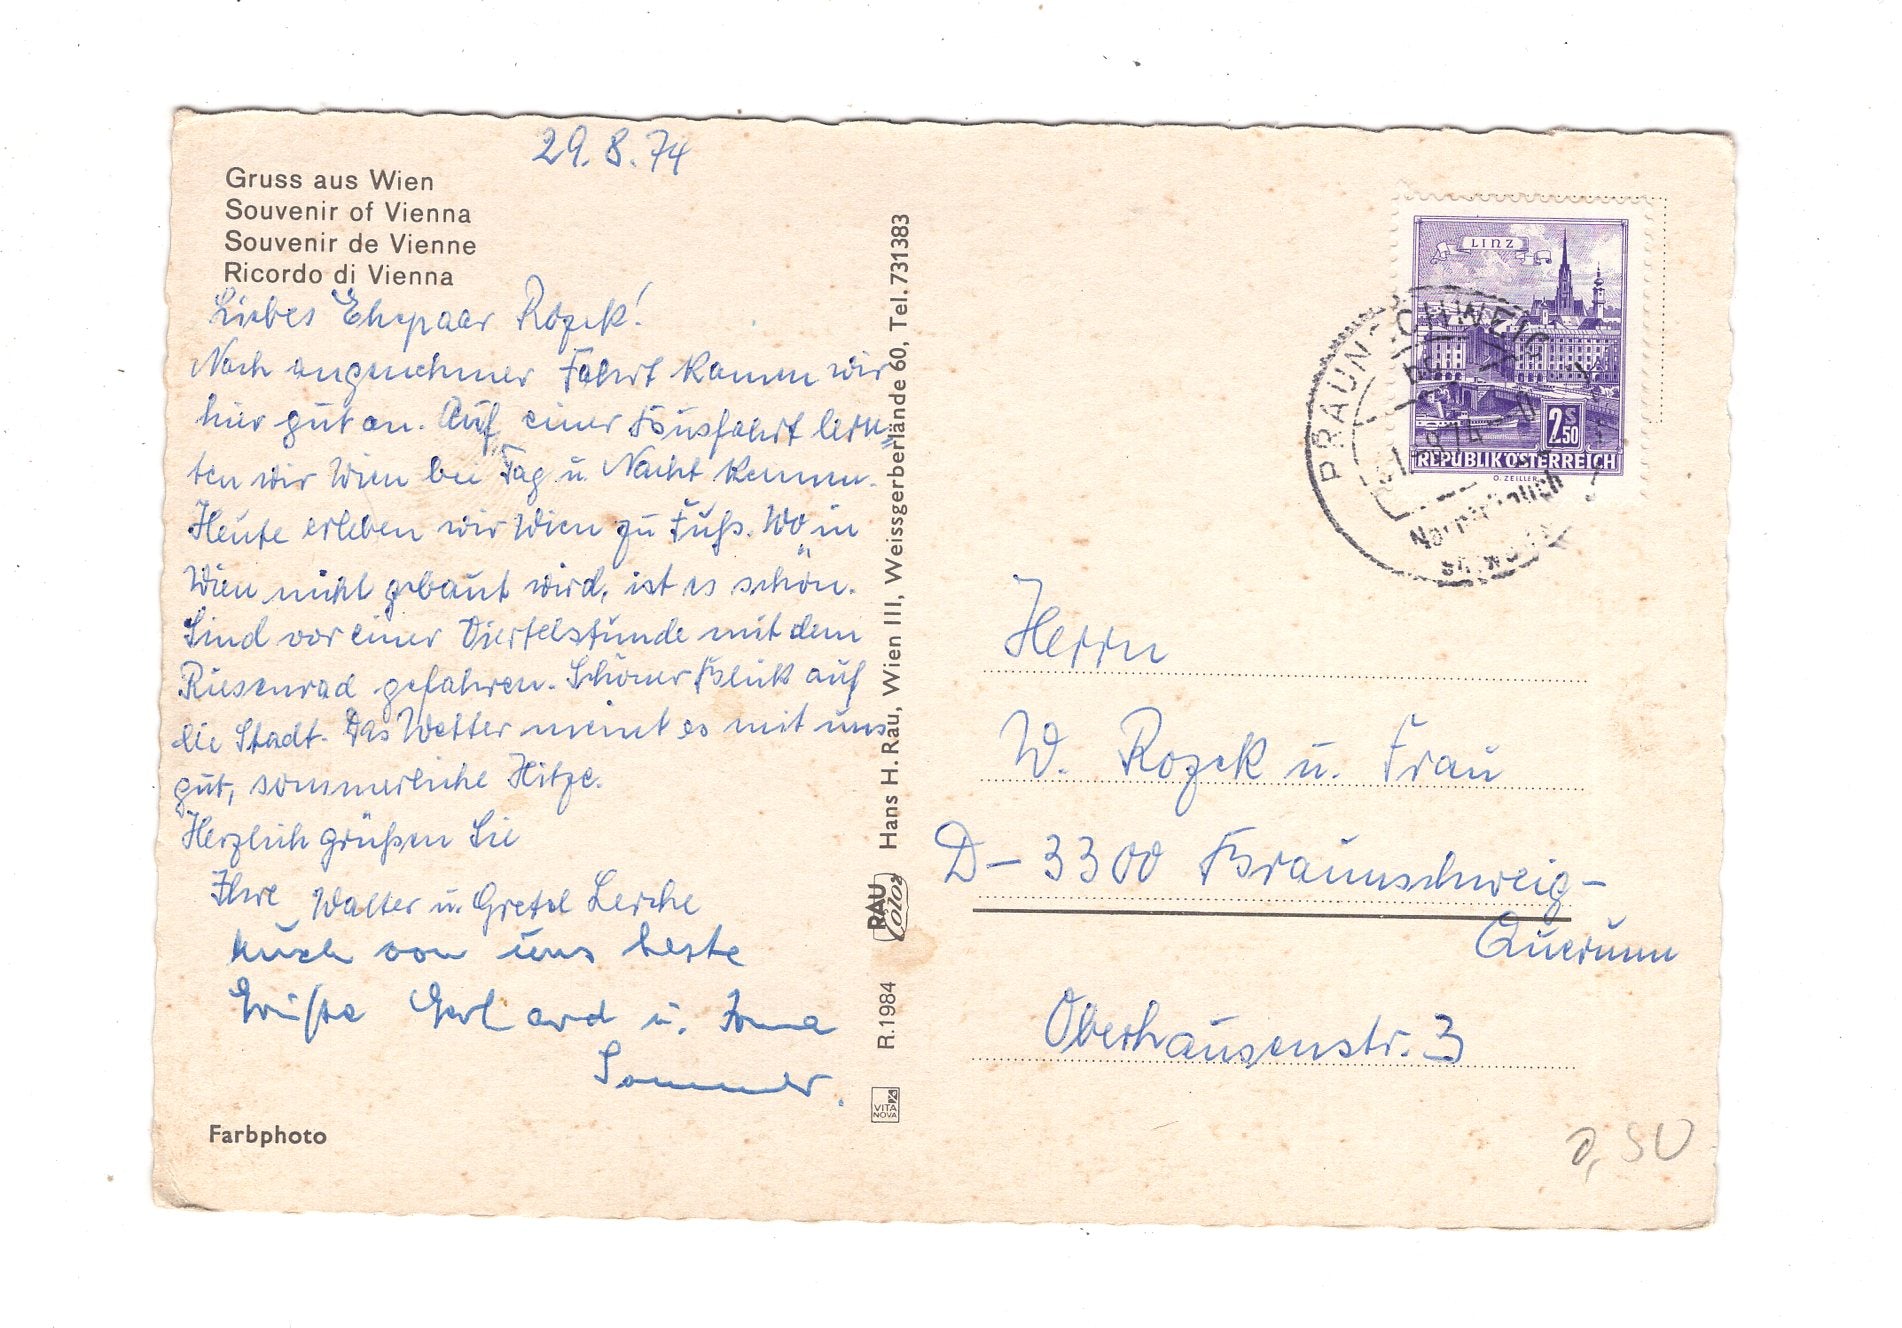 29.8.74
Gruss aus Wien
Souvenir of Vienna
Souvenir de Vienne
Ricordo di Vienna
Liebes Ehepaar Rozek!
Nach angenehmer Fahrt kamen wir
hier gut an. Auf einer Busfahrt lern-
ten wir Wien bei Tag u. Nacht kennen.
Heute erleben wir Wien zu Fuß. Wo in
Wien nicht gebaut wird, ist es schön.
Sind vor einer Viertelstunde mit dem
Riesenrad gefahren. Schöner Blick auf
die Stadt. Das Wetter meint es mit uns
gut, sommerliche Hitze.
Herzlich grüßen Sie
Ihre Walter u. Gretel Lerche
Auch von uns beste
Grüße Gerhard u.
Sommer.
Farbphoto
R.1984 RAU Color Hans H. Rau, Wien III, Weissgerberlände 60, Tel. 731383
VITA NOVA
LINZ
2S50
REPUBLIK ÖSTERREICH
O. ZEILLER
BRAUNSCHWEIG
Herrn
W. Rozek u. Frau
D-3300 Braunschweig-
Querum
Oberhausenstr. 3
0,50